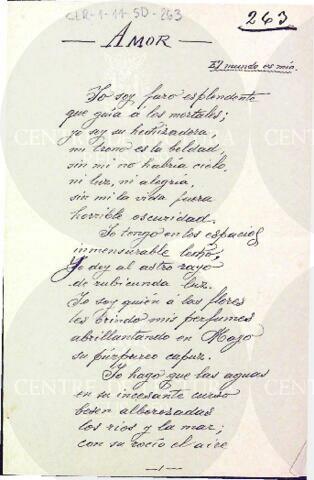 CLR-1-11-SD-263
263
— AMOR —
El mundo es mío.
Yo soy faro esplendente
que guía á los mortales;
yo soy su hechizadora
mi trono es la beldad,
sin mi no habría cielo,
ni luz, ni alegría,
sin mi la vida fuera
horrible oscuridad.
Yo tengo en los espacios
inmensurable
Yo doy al astro rayo
de rubicunda luz.
Yo soy quién á las flores
les brindo mis perfumes
abrillantando en Mayo
su púrpureo capuz.
Yo hago que las aguas
en su incesante curso
besen alborozadas
los rios y la mar;
con su rocío el aire
—1—